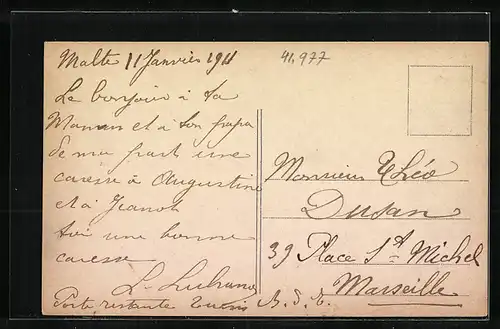 Malte 11 Janvier 1911
41,977
Le bonjour à ta
Maman et à ton papa
de ma part une
caresse à Augustine
et à Jeanot
toi une bonne
caresse
Poste restante Tunis
Monsieur Théo
Dusan
39 Place St Michel
Marseille
B. d. R.